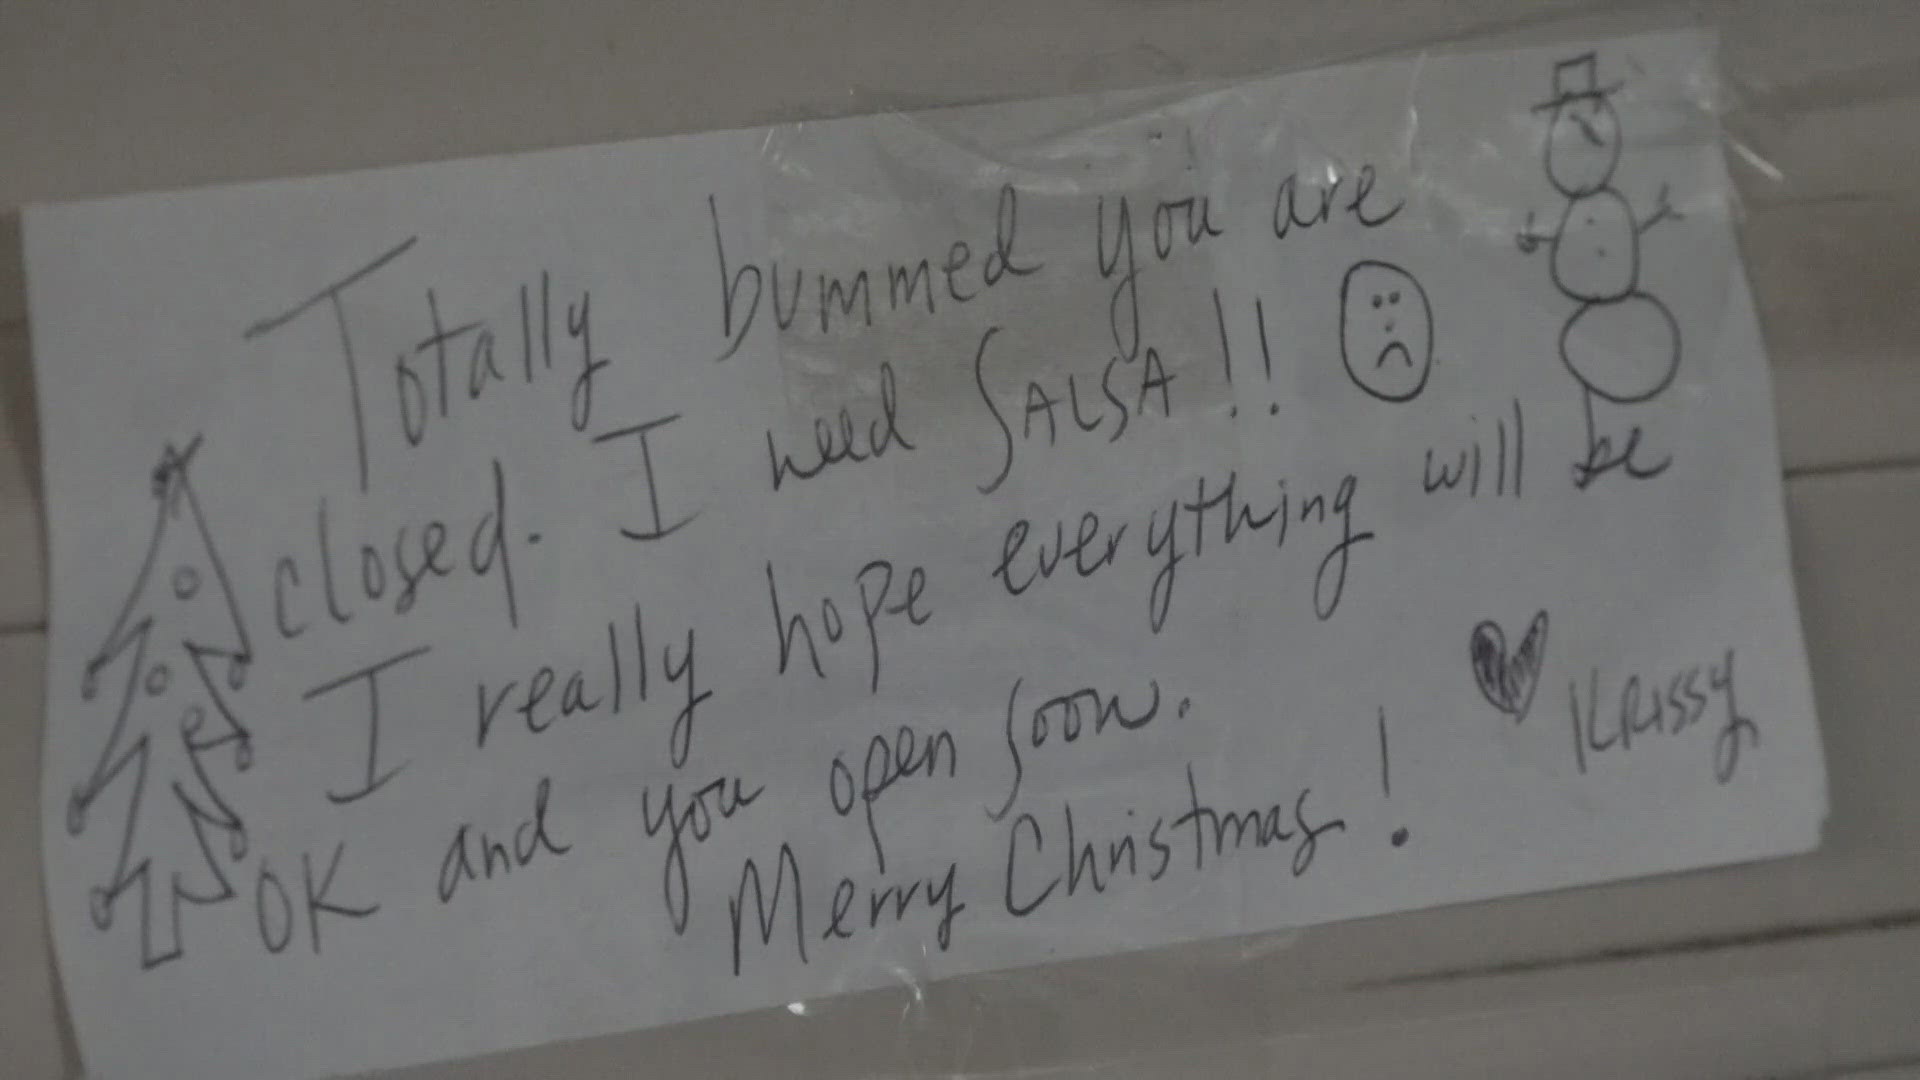 Totally bummed you are
closed. I need SALSA!!
I really hope everything will be
OK and you open soon.
Merry Christmas!
KRISSY